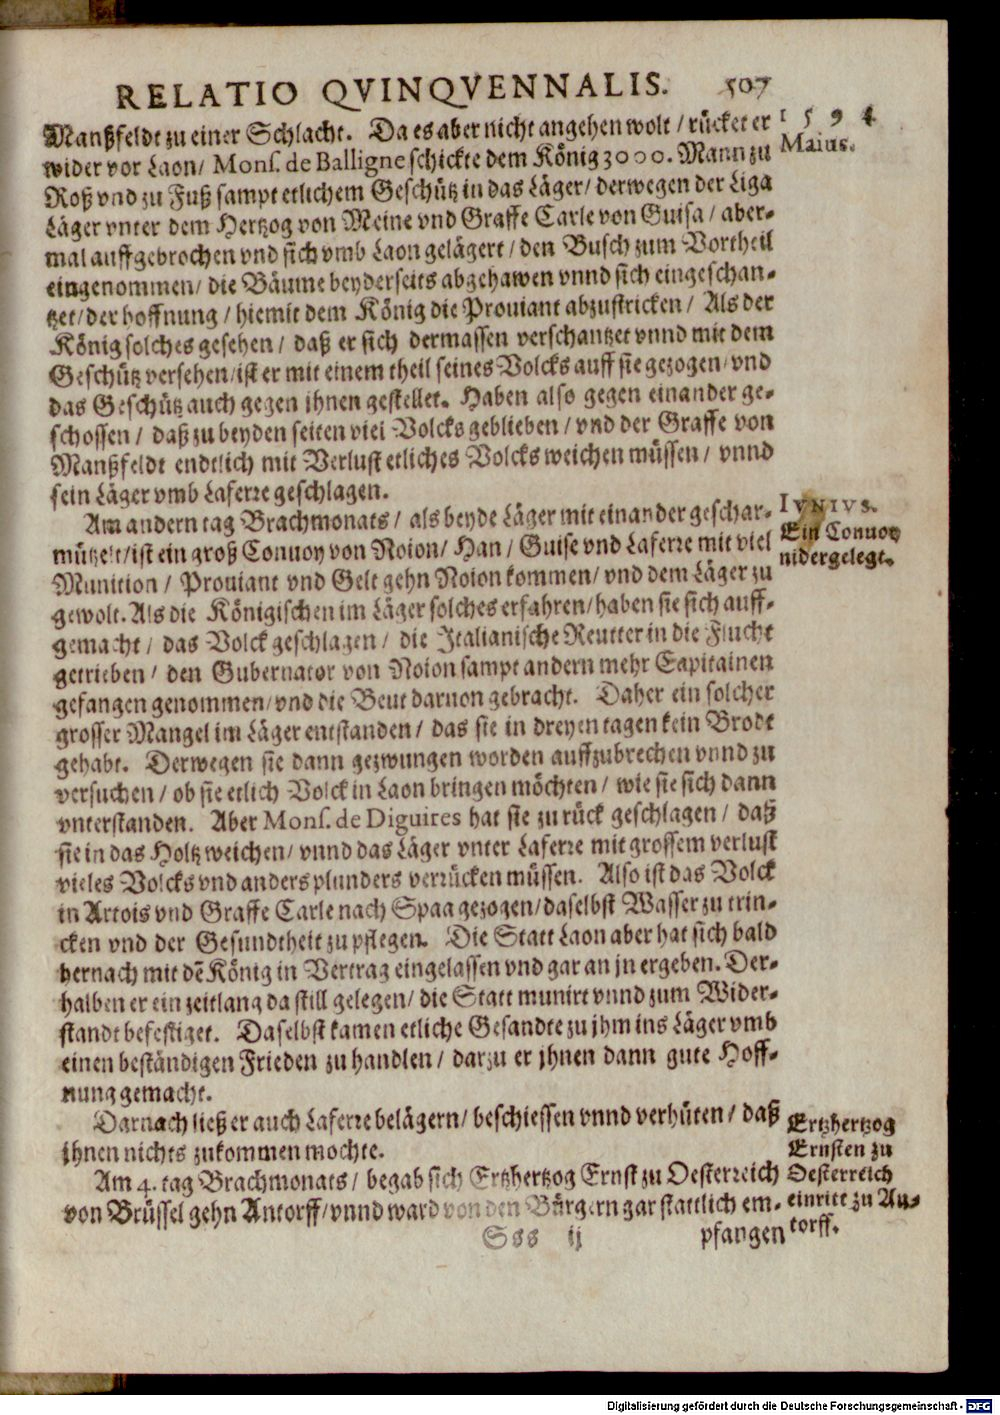 RELATIO QVINQVENNALIS. 507
1594
Maius.
Manßfeldt zu einer Schlacht. Da es aber nicht angehen wolt / rücket er
wider vor Laon / Mons. de Balligne schickte dem König 3000. Mann zu
Roß vnd zu Fuß sampt etlichem Geschütz in das Läger / derwegen der Liga
Läger vnter dem Hertzog von Meine vnd Graffe Carle von Guisa / aber-
mal auffgebrochen vnd sich vmb Laon gelägert / den Busch zum Vortheil
eingenommen / die Bäume beyderseits abgehawen vnnd sich eingeschan-
tzet / der hoffnung / hiemit dem König die Prouiant abzustricken / Als der
König solches gesehen / daß er sich dermassen verschantzet vnnd mit dem
Geschütz versehen / ist er mit einem theil seines Volcks auff sie gezogen / vnd
das Geschütz auch gegen ihnen gestellet. Haben also gegen einander ge-
schossen / daß zu beyden seiten viel Volcks geblieben / vnd der Graffe von
Manßfeldt endtlich mit Verlust etliches Volcks weichen müssen / vnnd
sein Läger vmb Laferre geschlagen.
IVNIVS.
Ein Conuoy
nidergelegt.
Am andern tag Brachmonats / als beyde Läger mit einander geschar-
mützelt / ist ein groß Conuoy von Noion / Han / Guise vnd Laferre mit viel
Munition / Prouiant vnd Gelt gehn Noion kommen / vnd dem Läger zu
gewolt. Als die Königischen im Läger solches erfahren / haben sie sich auff-
gemacht / das Volck geschlagen / die Italianische Reutter in die Flucht
getrieben / den Gubernator von Noion sampt andern mehr Capitainen
gefangen genommen / vnd die Beut daruon gebracht. Daher ein solcher
grosser Mangel im Läger entstanden / das sie in dreyen tagen kein Brodt
gehabt. Derwegen sie dann gezwungen worden auffzubrechen vnnd zu
versuchen / ob sie etlich Volck in Laon bringen möchten / wie sie sich dann
vnterstanden. Aber Mons. de Diguires hat sie zu rück geschlagen / daß
sie in das Holtz weichen / vnnd das Läger vnter Laferre mit grossem verlust
vieles Volcks vnd anders plunders verrücken müssen. Also ist das Volck
in Artois vnd Graffe Carle nach Spaa gezogen / daselbst Wasser zu trin-
cken vnd der Gesundtheit zu pflegen. Die Statt Laon aber hat sich bald
hernach mit dẽ König in Vertrag eingelassen vnd gar an jn ergeben. Der-
halben er ein zeitlang da still gelegen / die Statt munirt vnnd zum Wider-
standt befestiget. Daselbst kamen etliche Gesandte zu jhm ins Läger vmb
einen beständigen Frieden zu handlen / darzu er jhnen dann gute Hoff-
nung gemacht.
Darnach ließ er auch Laferre belägern / beschiessen vnnd verhüten / daß
jhnen nichts zukommen mochte.
Ertzhertzog
Ernsten zu
Oesterreich
einritt zu An-
torff.
Am 4. tag Brachmonats / begab sich Ertzhertzog Ernst zu Oesterreich
von Brüssel gehn Antorff / vnnd ward von den Bürgern gar stattlich em-
Sss ij pfangen
Digitalisierung gefördert durch die Deutsche Forschungsgemeinschaft - DFG